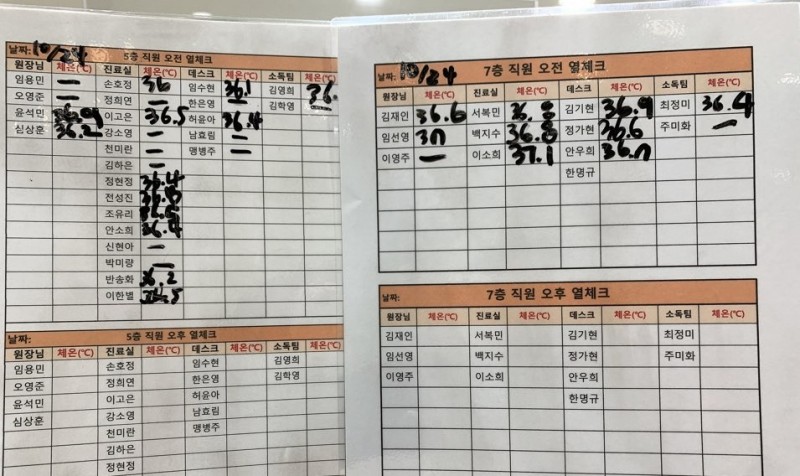 날짜: 10/24 5층 직원 오전 열체크
원장님 체온(℃) 진료실 체온(℃) 데스크 체온(℃) 소독팀 체온(℃)
임용민 — 손호정 36 임수현 36.1 김영희 36.
오영준 — 정희연 — 한은영 — 김학영 —
윤석민 이고은 36.5 허윤아 36.4
심상훈 36.2 강소영 — 남효림 —
천미란 — 맹병주 —
김하은 —
정현정 36.4
전성진
조유리
안소희 36.4
신현아 —
박미량 —
반송화 36.2
이한별
날짜: 5층 직원 오후 열체크
원장님 체온(℃) 진료실 체온(℃) 데스크 체온(℃) 소독팀 체온(℃)
임용민 손호정 임수현 김영희
오영준 정희연 한은영 김학영
윤석민 이고은 허윤아
심상훈 강소영 남효림
천미란 맹병주
김하은
정현정
날짜: 10/24 7층 직원 오전 열체크
원장님 체온(℃) 진료실 체온(℃) 데스크 체온(℃) 소독팀 체온(℃)
김재인 36.6 서복민 36.8 김기현 36.9 최정미 36.4
임선영 37 백지수 36.8 정가현 36.6 주미화 —
이영주 — 이소희 37.1 안우희 36.7
한명규
날짜: 7층 직원 오후 열체크
원장님 체온(℃) 진료실 체온(℃) 데스크 체온(℃) 소독팀 체온(℃)
김재인 서복민 김기현 최정미
임선영 백지수 정가현 주미화
이영주 이소희 안우희
한명규